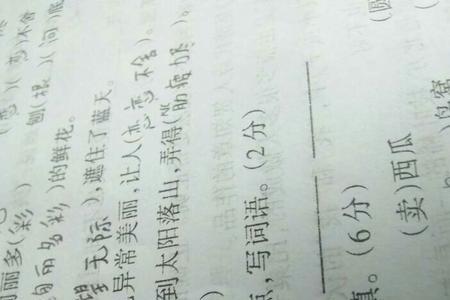 (恋)(恋)不舍
丽多(彩) 刨(根)(问)底
丽多彩)的鲜花。
望无际),遮住了蓝天。
异常美丽,让人(恋恋不舍)。
到太阳落山,弄得(筋疲力尽
,写词语。(2分)
真。(6分)
(卖)西瓜 (圆
鸟窝